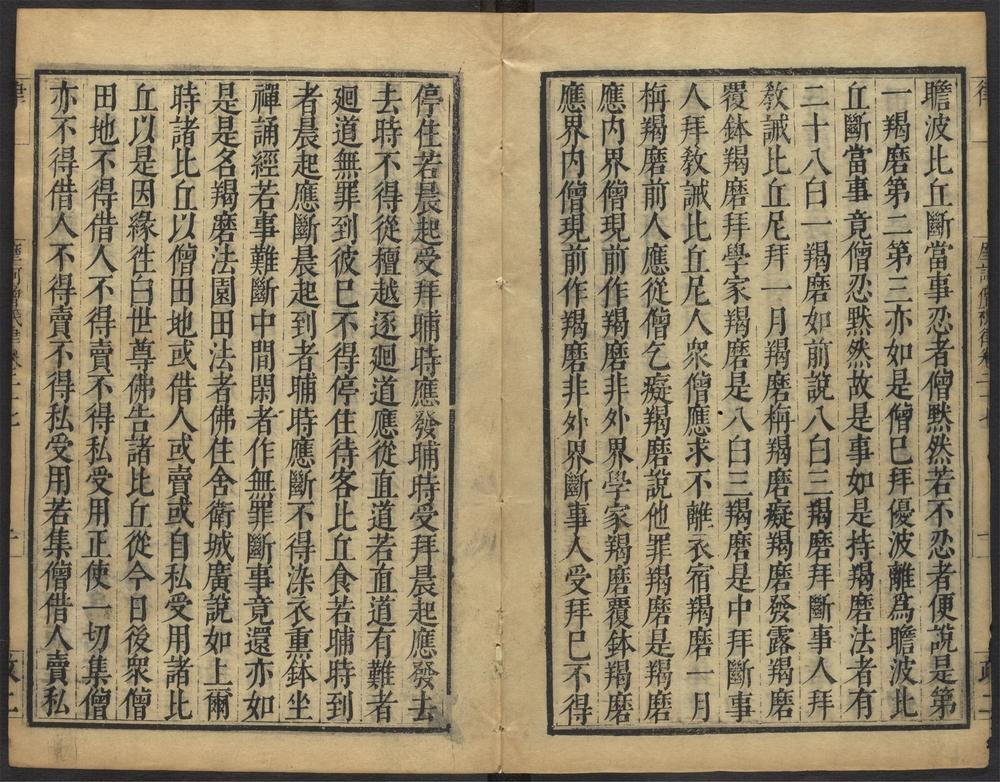 瞻波比丘斷當事忍者僧默然若不忍者便說是第
一羯磨第二第三亦如是僧巳拜優波離爲瞻波比
丘斷當事竟僧忍默然故是事如是持羯磨法者有
二十八白一羯磨如前說八白三羯磨拜斷事人拜
教誡比丘尼拜一月羯磨梅羯磨癡羯磨發露羯磨
覆鉢羯磨拜學家羯磨是八白三羯磨是中拜斷事
人拜教誡比丘尼人衆僧應求不離衣宿羯磨一月
梅羯磨前人應從僧乞癡羯磨說他罪羯磨是羯磨
應内界僧現前作羯磨非外界學家羯磨覆鉢羯磨
應界内僧現前作羯磨非外界斷事人受拜巳不得
停住若晨起受拜晡時應發晡時受拜晨起應發去
去時不得從檀越逐迴道應從直道若直道有難者
迴道無罪到彼巳不得停住待客比丘食若晡時到
者晨起應斷晨起到者晡時應斷不得染衣熏鉢坐
禪誦經若事難斷中間閑者作無罪斷事竟還亦如
是是名羯磨法園田法者佛住舍衛城廣說如上爾
時諸比丘以僧田地或借人或賣或自私受用諸比
丘以是因緣徃白世尊佛告諸比丘從今日後衆僧
田地不得借人不得賣不得私受用正使一切集僧
亦不得借人不得賣不得私受用若集僧借人賣私